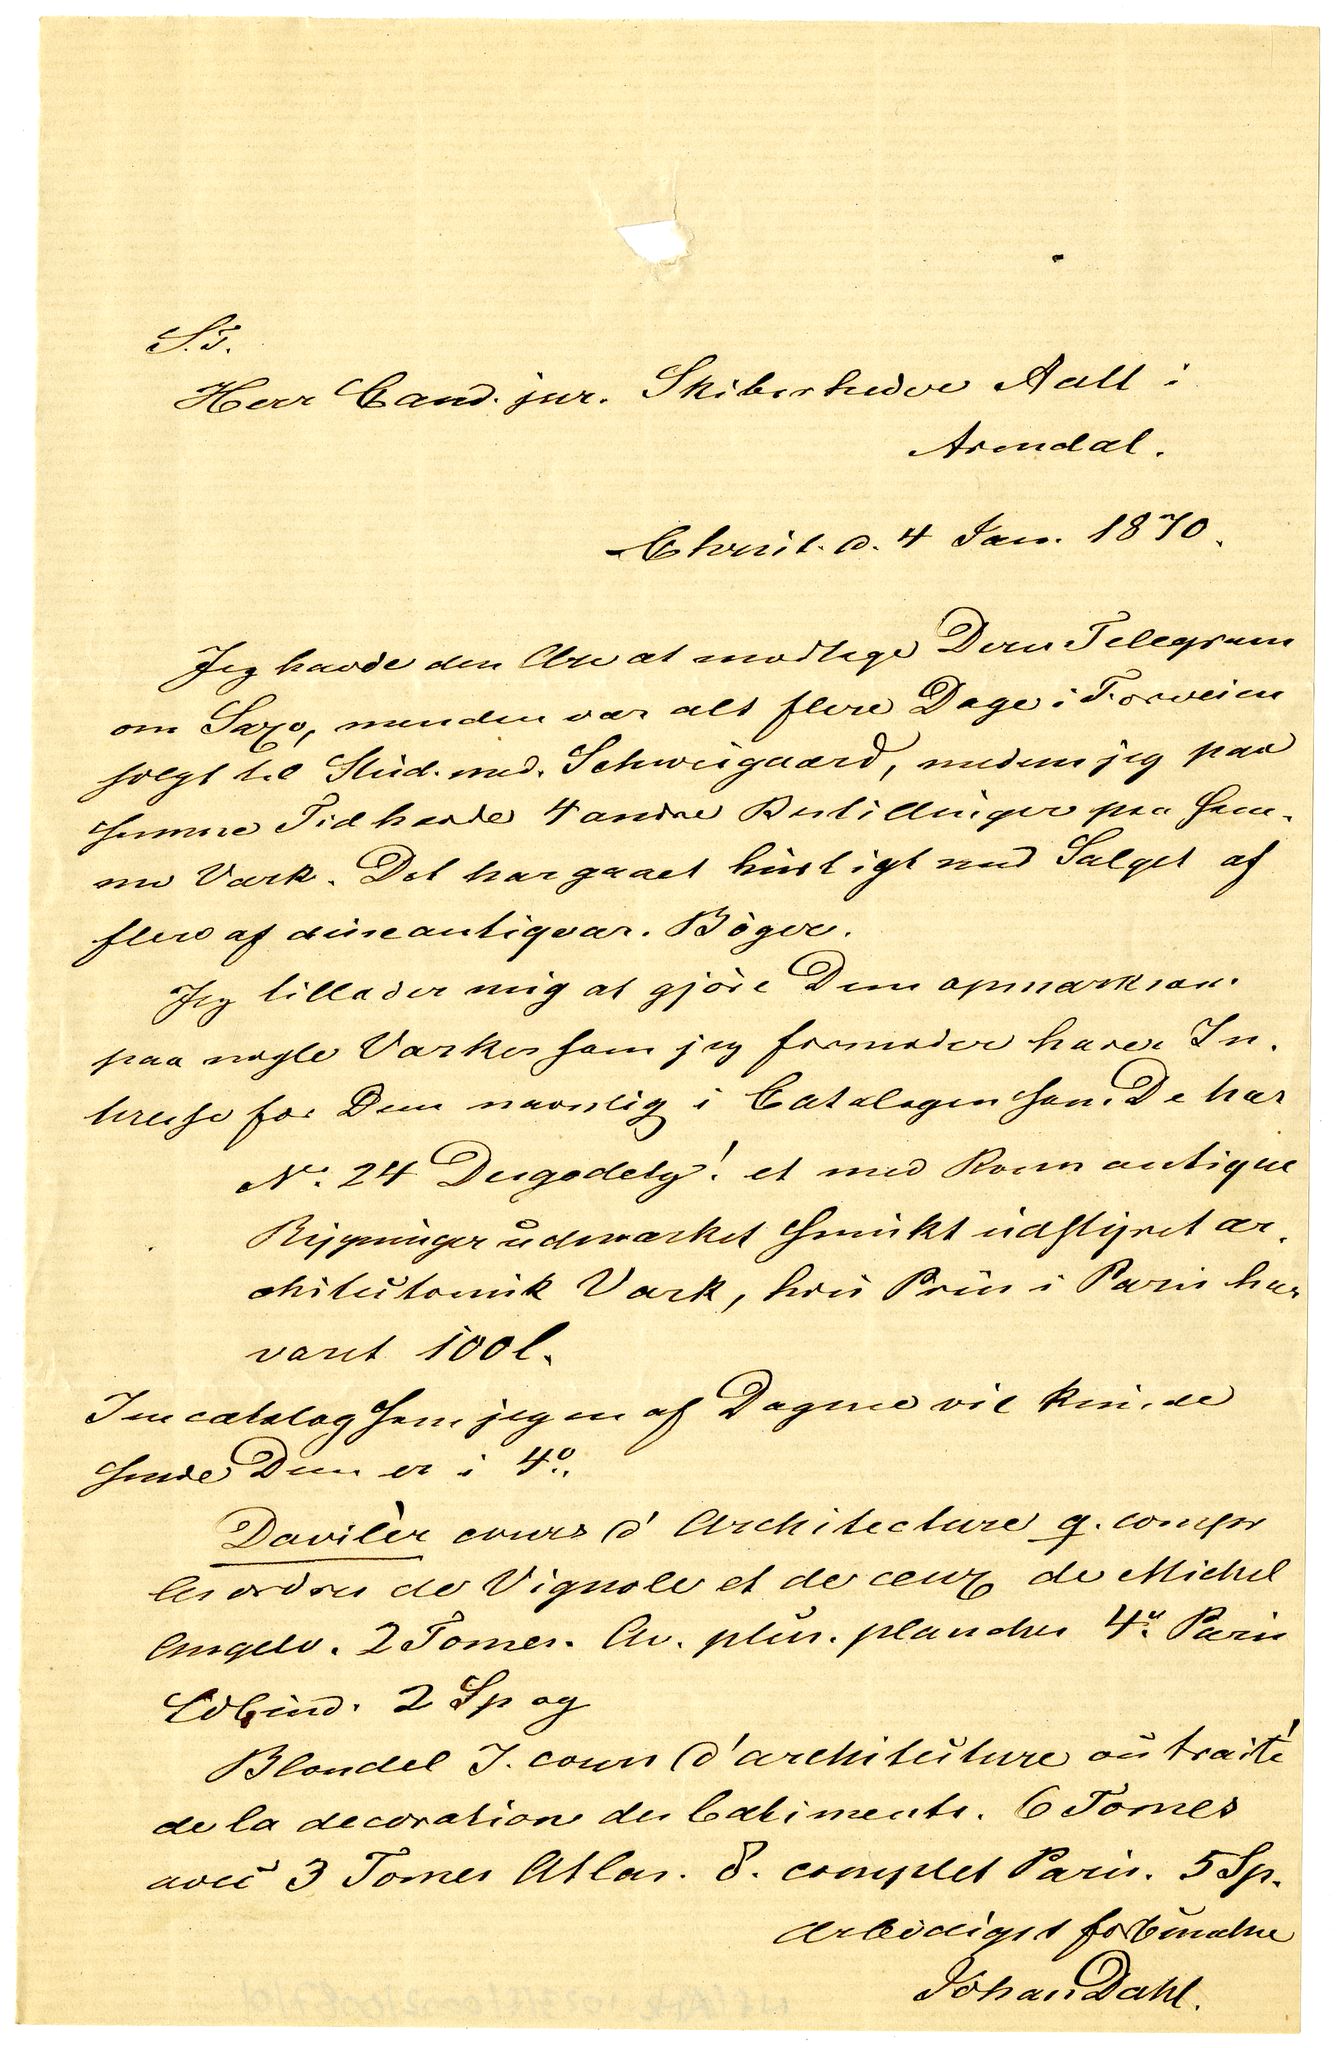 S.T.
Herr Cand. jur. Skibsrheder Aall i
Arendal.
Christ. d. 4 Jan. 1870.
Jeg havde den Ære at modtage Deres Telegram
om Saxo, men den var alt flere Dage i Forveien
solgt til Stud. med. Schweigaard, medens jeg paa
samme Tid havde 4 andre Bestillinger paa sam-
me Værk. Det har gaaet hurtigt med Salget af
flere af disse antiqvar. Bøger.
Jeg tillader mig at gjöre Dem opmærksom
paa nogle Værker som jeg formoder haver In-
teresse for Dem navnlig i Catalogen som De har
No. 24 Desgodetz! et med Roms antique
Bygninger udmærket smukt udstyret ar-
chitectonisk Værk, hvis Priis i Paris har
været 100 l.
I en catalog som jeg en af Dagene vil kunde
sende Dem er i 4o.
Davilèr cours d'Architecture q. compr
les ordres de Vignole et de ceux de Michel
Angelo. 2 Tomes. Av. plus. planches 4o. Paris
Ldbind. 2 Sp og
Blondel J. cours d'architecture ou traité
de la decoration des batiments. 6 Tomes
avec 3 Tomes Atlas. 8. complet Paris. 5 Sp.
Ærbödigst forbindtlne
Johan Dahl.